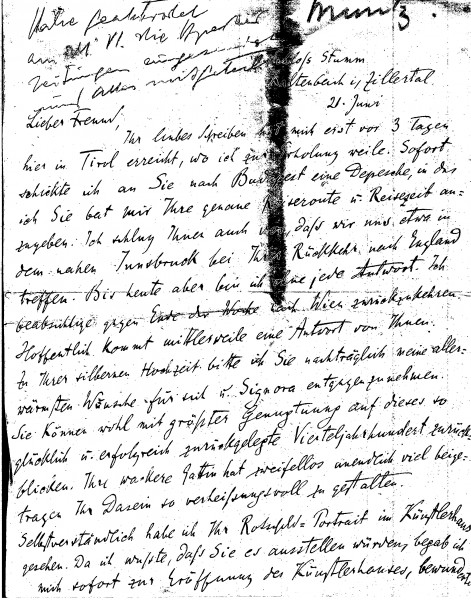 Habe beantwortet
am 11. VI. die
Zeitungen
und alles mitgeteilt
Schloss Stumm
Kaltenbach i. Zillertal
21. Juni
Lieber Freund,
Ihr liebes Schreiben hat mich erst vor 3 Tagen
hier in Tirol erreicht, wo ich zur Erholung weile. Sofort
schickte ich an Sie nach Budapest eine Depesche, in der
ich Sie bat mir Ihre genaue Reiseroute u. Reisezeit an=
zugeben. Ich schlug Ihnen auch vor, daß wir uns etwa in
dem nahen Innsbruck bei Ihrer Rückkehr nach England
treffen. Bis heute aber bin ich ohne jede Antwort. Ich
beabsichtige gegen Ende der Woche nach Wien zurückzukehren.
Hoffentlich kommt mittlerweile eine Antwort von Ihnen.
Zu Ihrer silbernen Hochzeit bitte ich Sie nachträglich meine aller-
wärmsten Wünsche für sich u. Signora entgegenzunehmen
Sie können wohl mit größter Genugtuung auf dieses so
glücklich u. erfolgreich zurückgelegte Vierteljahrhundert zurück
blicken. Ihre wackere Gattin hat zweifellos unendlich viel beige-
tragen Ihr Dasein so verheißungsvoll zu gestalten.
Selbstverständlich habe ich Ihr Portrait im Künstlerhaus
gesehen. Da ich wußte, daß Sie es ausstellen würden, begab ich
mich sofort zur Eröffnung des Künstlerhauses, bewunderte